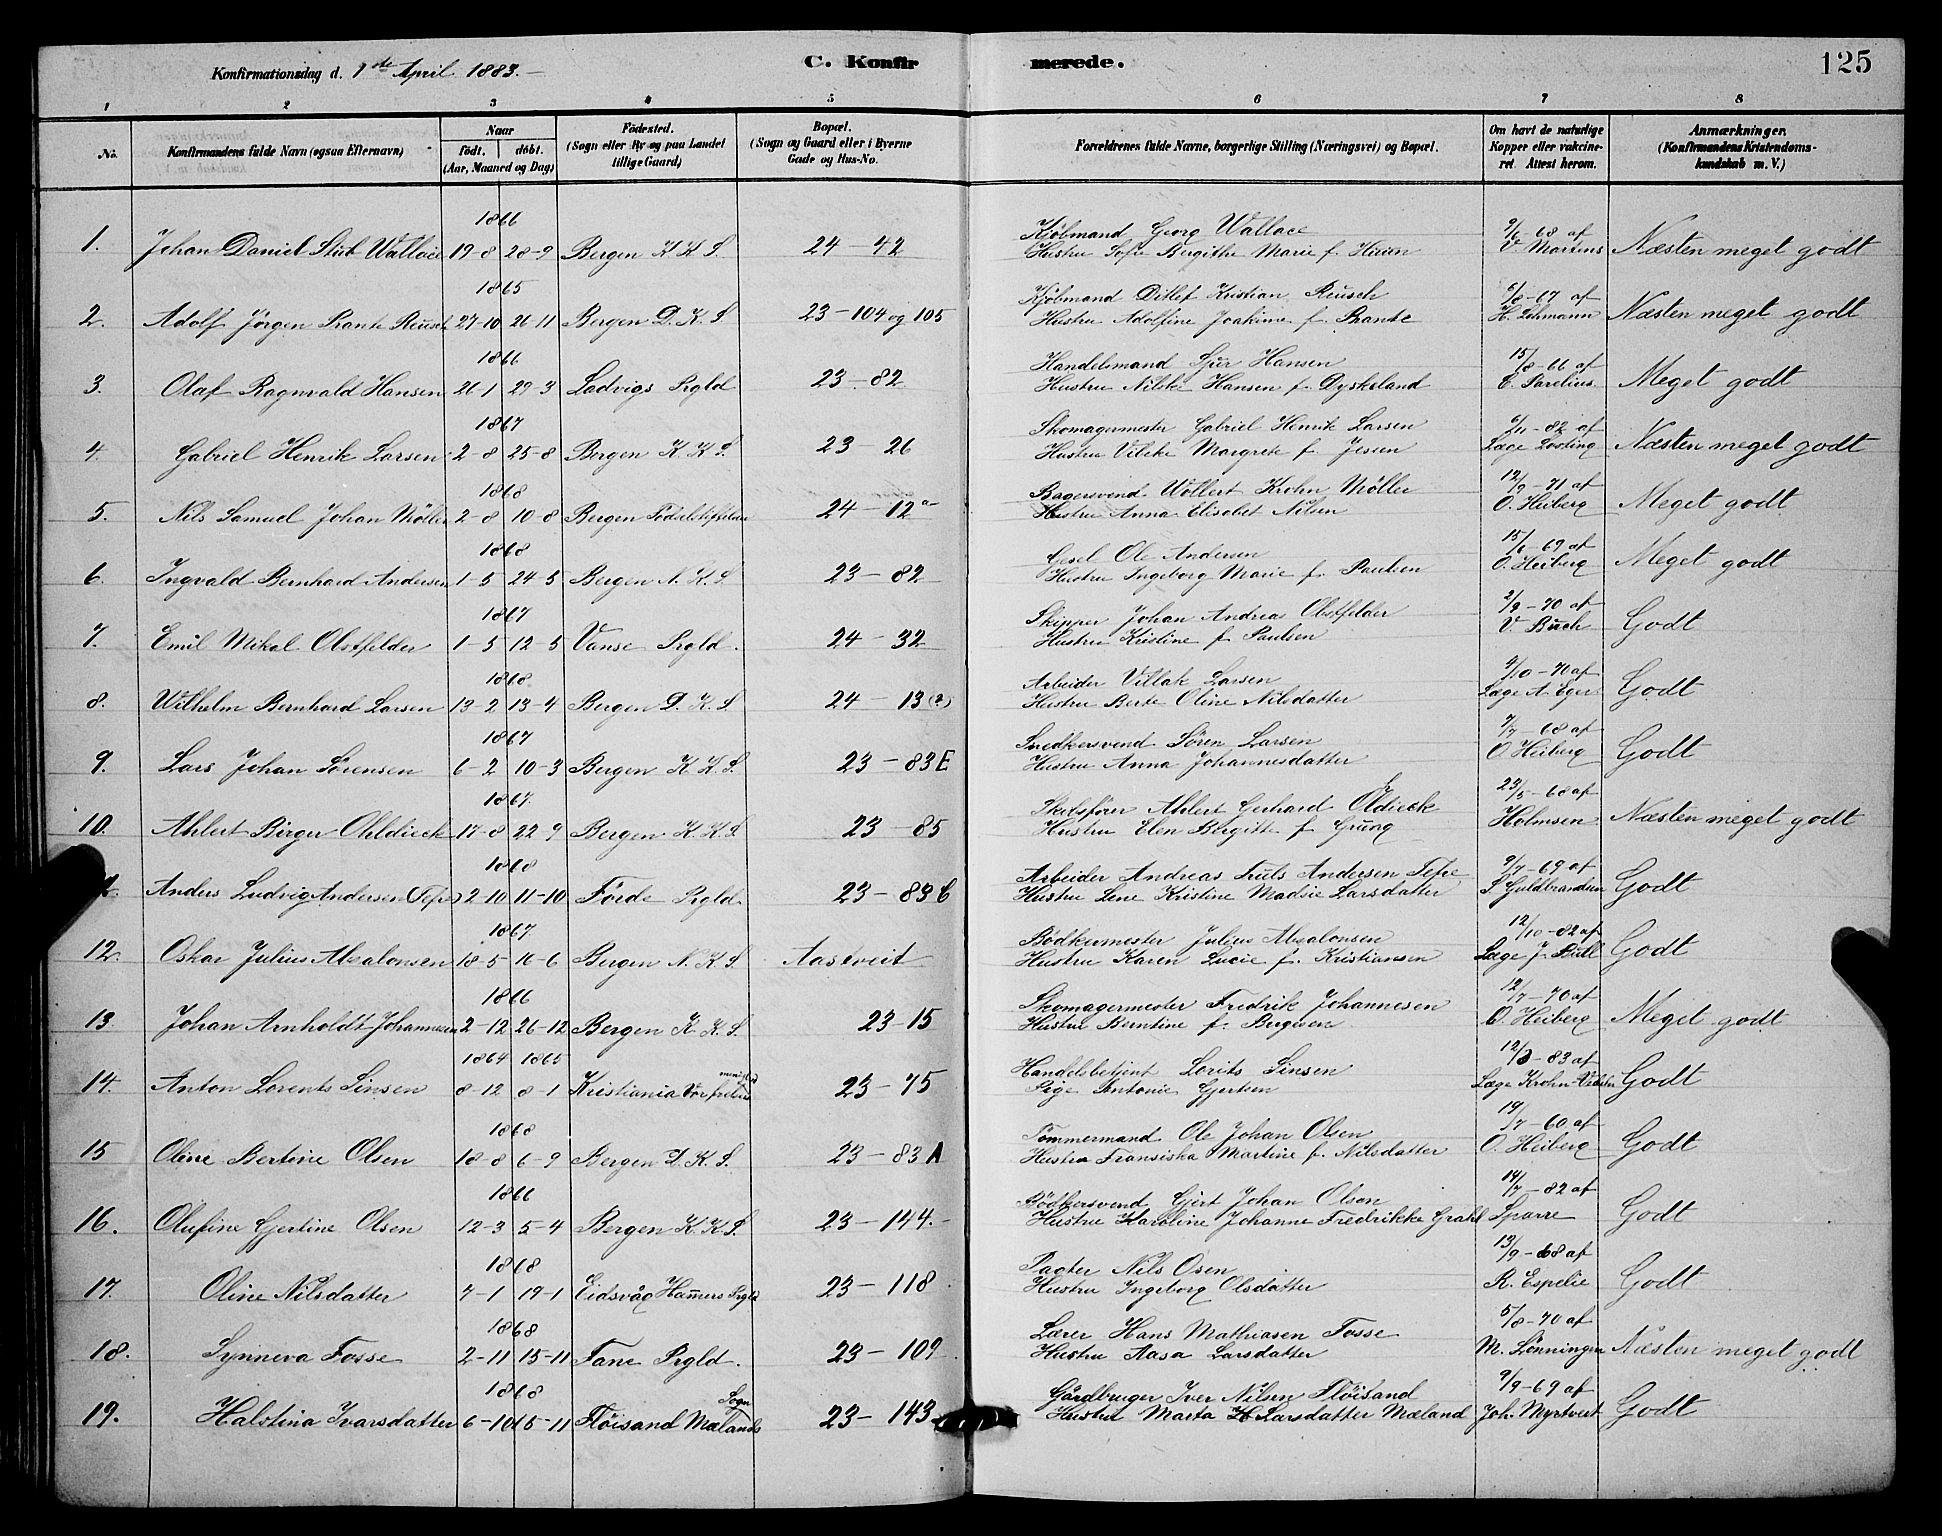 Konfirmationsdag d. 1ste April 1883.
C. Konfirmerede.
125
1 2 3 4 5 6 7 8
No. Konfirmandens fulde Navn (ogsaa Efternavn) Naar födt. döbt. (Aar, Maaned og Dag) Födested. (Sogn eller By og paa Landet tillige Gaard) Bopæl. (Sogn og Gaard eller i Byerne Gade og Hus-No. Forældrenes fulde Navne, borgerlige Stilling (Næringsvei) og Bopæl. Om havt de naturlige Kopper eller vakcineret. Attest herom. Anmærkninger. (Konfirmandens Kristendomskundskab m. V.)
1866 Kjöbmand Georg Wallace 9/6 68 af
1. Johan Daniel Stub Wallace 19-8 28-9 Bergen K K S. 24 - 42 Hustru Sofie Bergithe Marie f. V. Martens Næsten meget godt
1865 Kjöbmand Ditlef Kristian Reusch 6/8-67 af
2. Adolf Jörgen Prante Reusch 27-10 26-11 Bergen D. K. S. 23-104 og 105 Hustru Adolfine Joakime f. Prante H. Lehmann Næsten meget godt
1866 Handelsmand Sjur Hansen 15/8-66 af
3. Olaf Ragnvald Hansen 26-1 29-3 Ladvigs Prgld 23-82 Hustru Hansen f. Dyksland E. Parelius Meget godt
1867 Skomagermester Gabriel Henrik Larsen 6/11-82 af
4. Gabriel Henrik Larsen 2-8 25-8 Bergen K. K S. 23 - 26 Hustru Vibeke Margrete f. Jessen Læge Losting Næsten meget godt
1868 Bagersvend Wollert Krohn Möller 12/9-71 af
5. Nils Samuel Johan Möller 2-8 10-8 Bergen Födselsstiftelsen 24-12 a Hustru Anna Elisabet Nilsen O. Heiberg Meget godt
1868 Gesel Ole Andersen 15/6-69 af
6. Ingvald Bernhard Andersen 1-5 24-5 Bergen N. K. S. 23-82 Hustru Ingeborg Marie f. Paulsen O. Heiberg Meget godt
1867 Skipper Johan Andreas Obstfelder 2/9-70 af
7. Emil Mikal Obstfelder 1-5 12-5 Vanse Prgld. 24-32 Hustru Kristine f. Paulsen V. Buch Godt
1868 Arbeider Villak Larsen 4/10-70 af
8. Wilhelm Bernhard Larsen 13-2 13-4 Bergen D. K. S. 24 - 13 (a) Hustru Berte Oline Nilsdatter Læge A. Eger Godt
1867 Snedkersvend Sören Larsen 7/7-68 af
9. Lars Johan Sörensen 6-2 10-3 Bergen K. K. S. 23-83E Hustru Anna Johannesdatter O. Heiberg Godt
1867. Skibsförer Ahlert Gerhard Öldieck 23/5-68 af
10. Ahlert Birger Ohldieck 17-8 22-9 Bergen K. K. S. 23-85 Hustru Elen Bergitte f. Grung Holmsen Næsten meget godt
1868 Arbeider Andreas Andersen Tepe 9/7-69 af
Anders Ludvig Andersen (Tepe) 2-10 11-10 Förde Prgld. 23-83 C Hustru Lene Kristine Madsie Larsdatter Guldbrandsen Godt
1867 Bödkermester Julius Absalonsen 12/10-82 af
12. Oskar Julius Absalonsen 18-5 16-6 Bergen N. K. S. Aastveit Hustru Karen Lucie f. Kristiansen Læge J. Bull Godt
1866 Skomagermester Fredrik Johannesen 12/7-70 af
13. Johan Arnholdt Johannesen 2-12 26-12 Bergen K. K. S. 23-15 Hustru Berntine f. Bergesen O. Heiberg Meget godt
1864 1865 Handelsbetjent Lorits Sinsen 12/3-83 af
14. Anton Lorents Sinsen 8-12 8-1 Kristiania Vor frelsers menighed 23-75 Pige Antonie Gjertsen Læge Krohn Godt
1868 Tömmermand Ole Johan Olsen 19/7-60 af
15 Oline Bertine Olsen 18-8 6-9 Bergen D. K. S. 23-83 A Hustru Fransiska Martine f. Nilsdatter O. Heiberg Godt
1866 Bödkersvend Gjert Johan Olsen 14/7-82 af
16. Olufine Gjertine Olsen 12-3 5-4 Bergen K. K. S. 23-144. Hustru Karoline Johanne Fredrikke Grahl Sparre Godt
1868 Pagter Nils Osen 13/9-68 af
17. Oline Nilsdatter 7-1 19-1 Eidsvåg Hamers Prgld 23-118 Hustru Ingeborg Olsdatter R. Espelie Godt
1868 Lærer Hans Mathiasen Fosse 5/8-70 af
18. Synneva Fosse 2-11 15-11 Fane Prgld. 23-109 Hustru Aasa Larsdatter M. Lönningen Næsten meget godt
1868 Gårdbruger Iver Nilsen Flöisand 9/9-69 af
19. Halstina Ivarsdatter 6-10 15-11 Flöisand Mælands Sogn 23-143 Hustru Marta H Larsdatter Mæland Joh. Myrtvert Godt